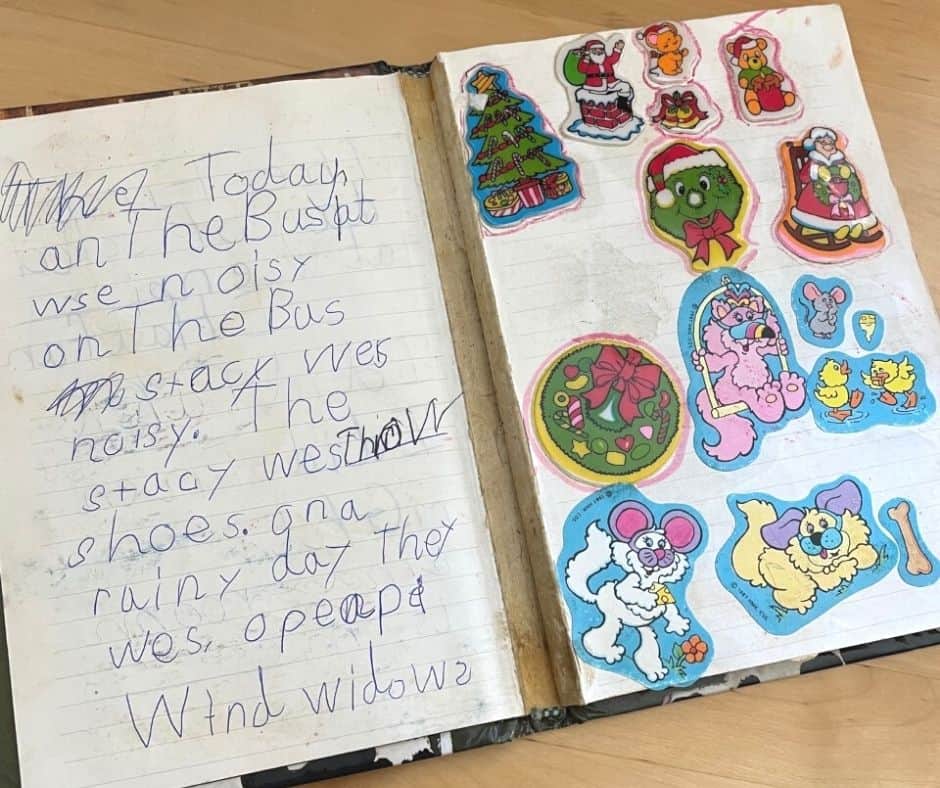 Today
an The Buspt
wse noisy
on The Bus
stacy wes
noisy. The
stacy wes ThoW
shoes. gna
rainy day They
wes. opeapd
Wind widows